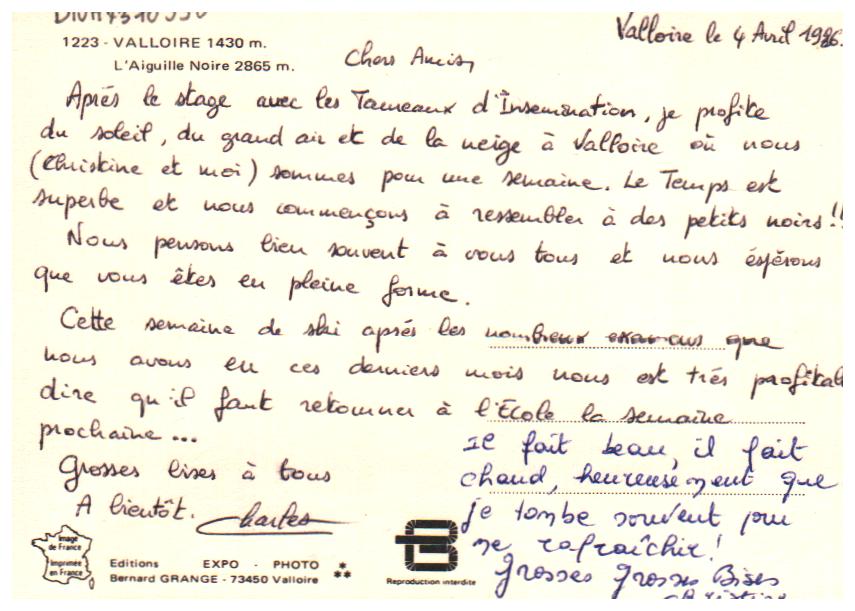 Valloire le 4 Avril 1986.
1223 - VALLOIRE 1430 m.
L'Aiguille Noire 2865 m.
Chers Amis,
Après le stage avec les Taureaux d'Insemination, je profite
du soleil, du grand air et de la neige à Valloire où nous
(Christine et moi) sommes pour une semaine. Le Temps est
superbe et nous commençons à ressembler à des petits noirs!!
Nous pensons bien souvent à vous tous et nous éspérons
que vous êtes en pleine forme.
Cette semaine de ski après les nombreux examens que
nous avons eu ces derniers mois nous est très profitabl
dire qu'il faut retourner à l'École la semaine
prochaine...
Grosses bises à tous
A bientôt. Charles
Il fait beau, il fait
chaud, heureusement que
je tombe souvent pour
me rafraîchir!
Grosses Grosses Bises
Christine
Image
de France
Imprimée
en France
Editions EXPO - PHOTO
Bernard GRANGE - 73450 Valloire
Reproduction interdite